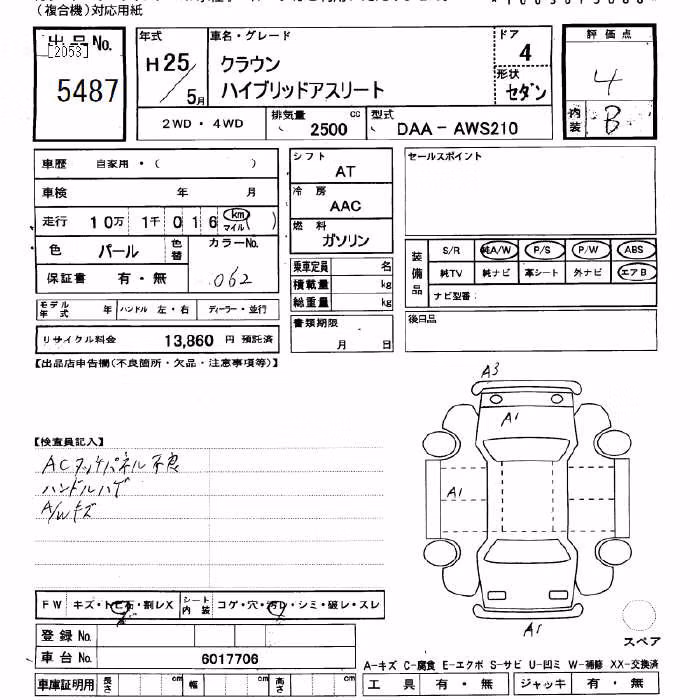 (複合機)対応用紙
出品No.
[2053]
5487
年式
H25/5月
車名・グレード
クラウン
ハイブリッドアスリート
ドア
4
形状
セダン
評価点
4
内装
B
2WD・4WD
排気量 2500 cc
型式 DAA-AWS210
車歴 自家用・( )
車検 年 月
走行 10万 1千 016 km マイル ( )
色 パール 色替 カラーNo.
062
保証書 有・無
モデル年式 年 ハンドル 左・右 ディーラー・並行
リサイクル料金 13,860 円 預託済
シフト
AT
冷房
AAC
燃料
ガソリン
乗車定員 名
積載量 kg
総重量 kg
書類期限
月 日
セールスポイント
装備品
S/R 純A/W P/S P/W ABS
純TV 純ナビ 革シート 外ナビ エアB
ナビ型番:
後日品
【出品店申告欄(不良箇所・欠品・注意事項等)】
【検査員記入】
ACタッチパネル不良
ハンドルハゲ
A/Wキズ
A3
A1
A1
A1
スペア
FW キズ・トビ石・割レX シート内装 コゲ・穴・汚レ・シミ・破レ・スレ
登録No.
車台No. 6017706
車庫証明用 長さ cm 幅 cm 高さ cm
A-キズ C-腐食 E-エクボ S-サビ U-凹ミ W-補修 XX-交換済
工具 有・無 ジャッキ 有・無